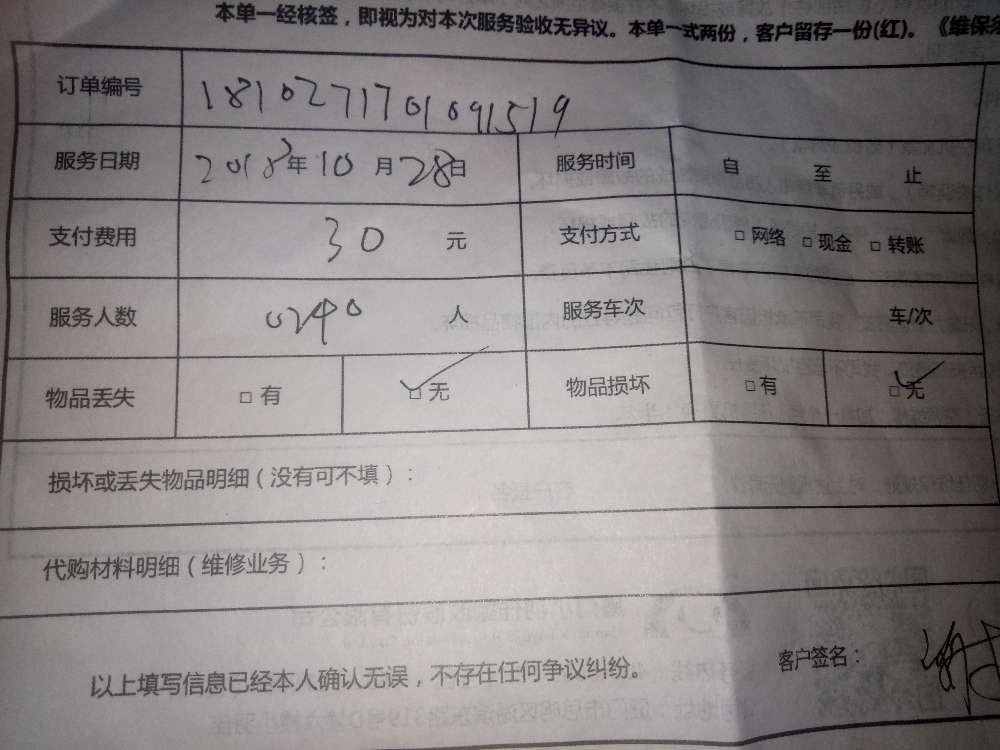 本单一经核签，即视为对本次服务验收无异议。本单一式两份，客户留存一份(红)。《维保
订单编号 181027170109 1519
服务日期 2018年10月28日 服务时间 自 至 止
支付费用 30 元 支付方式 □ 网络 □ 现金 □ 转账
服务人数 0290 人 服务车次 车/次
物品丢失 □ 有 □ 无 物品损坏 □ 有 □ 无
损坏或丢失物品明细（没有可不填）：
代购材料明细（维修业务）：
以上填写信息已经本人确认无误，不存在任何争议纠纷。 客户签名：